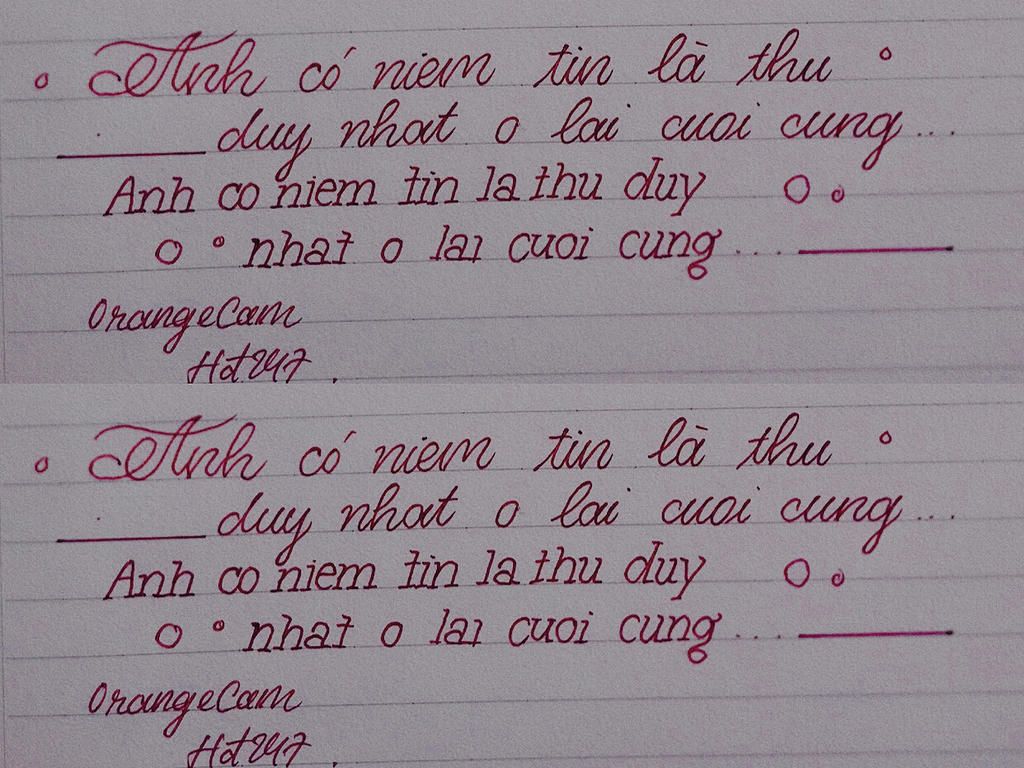 Anh có niem tin là thu
duy nhat o lai cuoi cung...
Anh co niem tin la thu duy
nhat o lai cuoi cung....
OrangeCam
Hot247.
Anh có niem tin là thu
duy nhat o lai cuoi cung...
Anh co niem tin la thu duy
nhat o lai cuoi cung....
OrangeCam
Hot247.